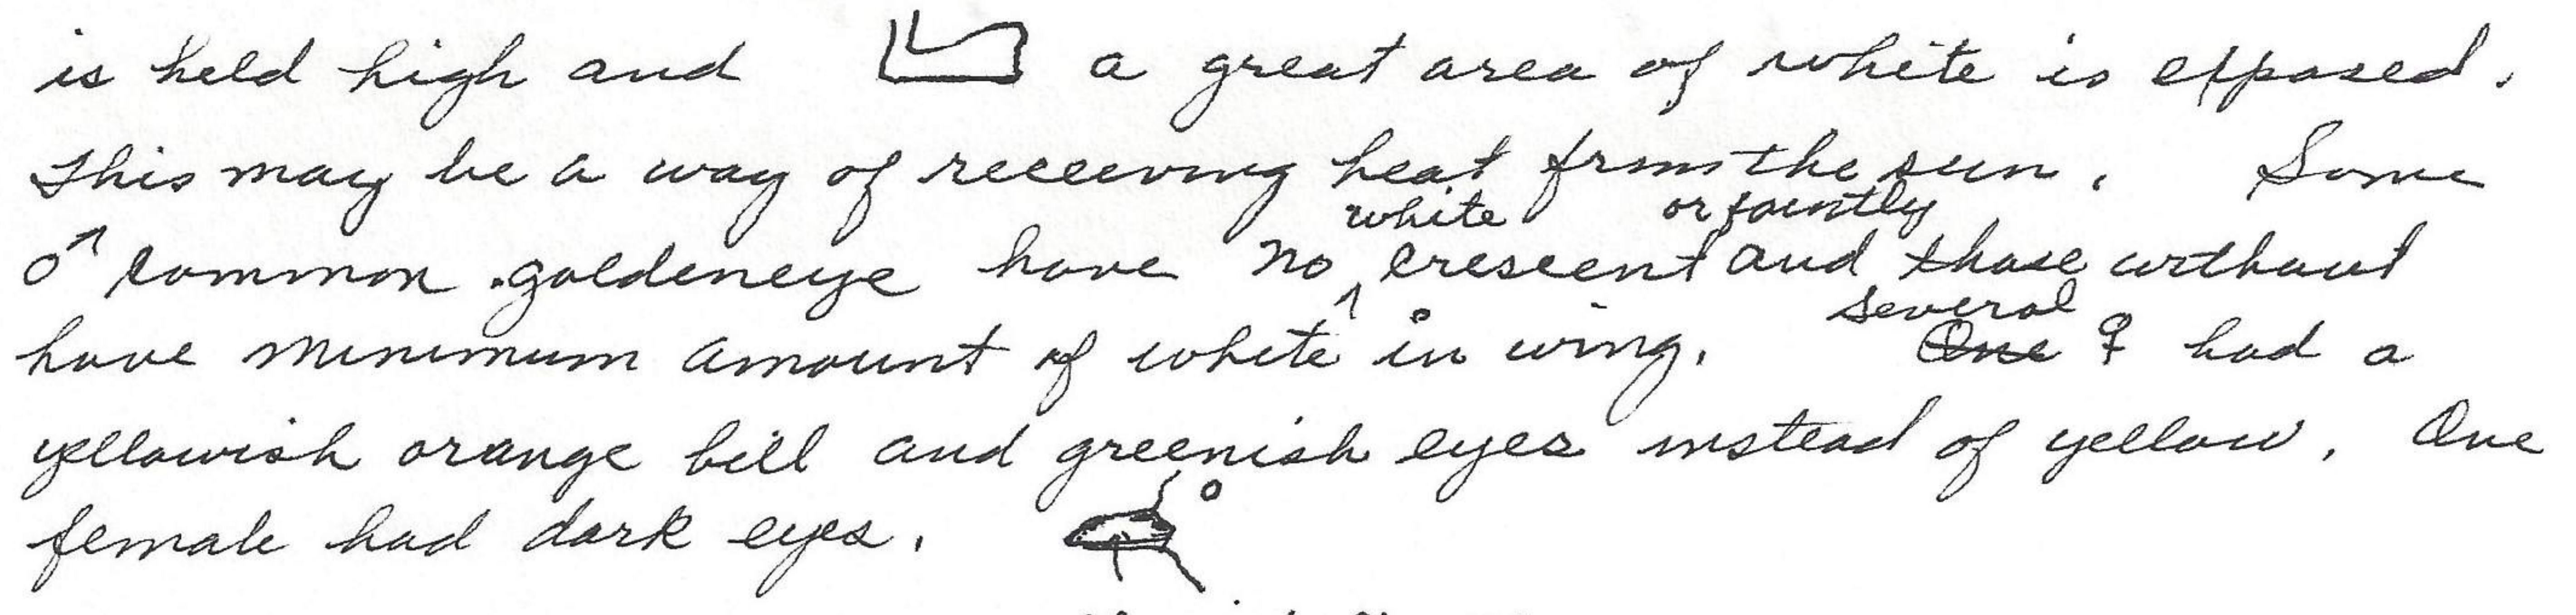 is held high and a great area of white is exposed.
This may be a way of receiving heat from the sun. Some
white or faintly
♂ common goldeneye have no ^ crescent and those without
several
have minimum amount of white in wing. One ♀ had a
yellowish orange bill and greenish eyes instead of yellow. One
female had dark eyes.